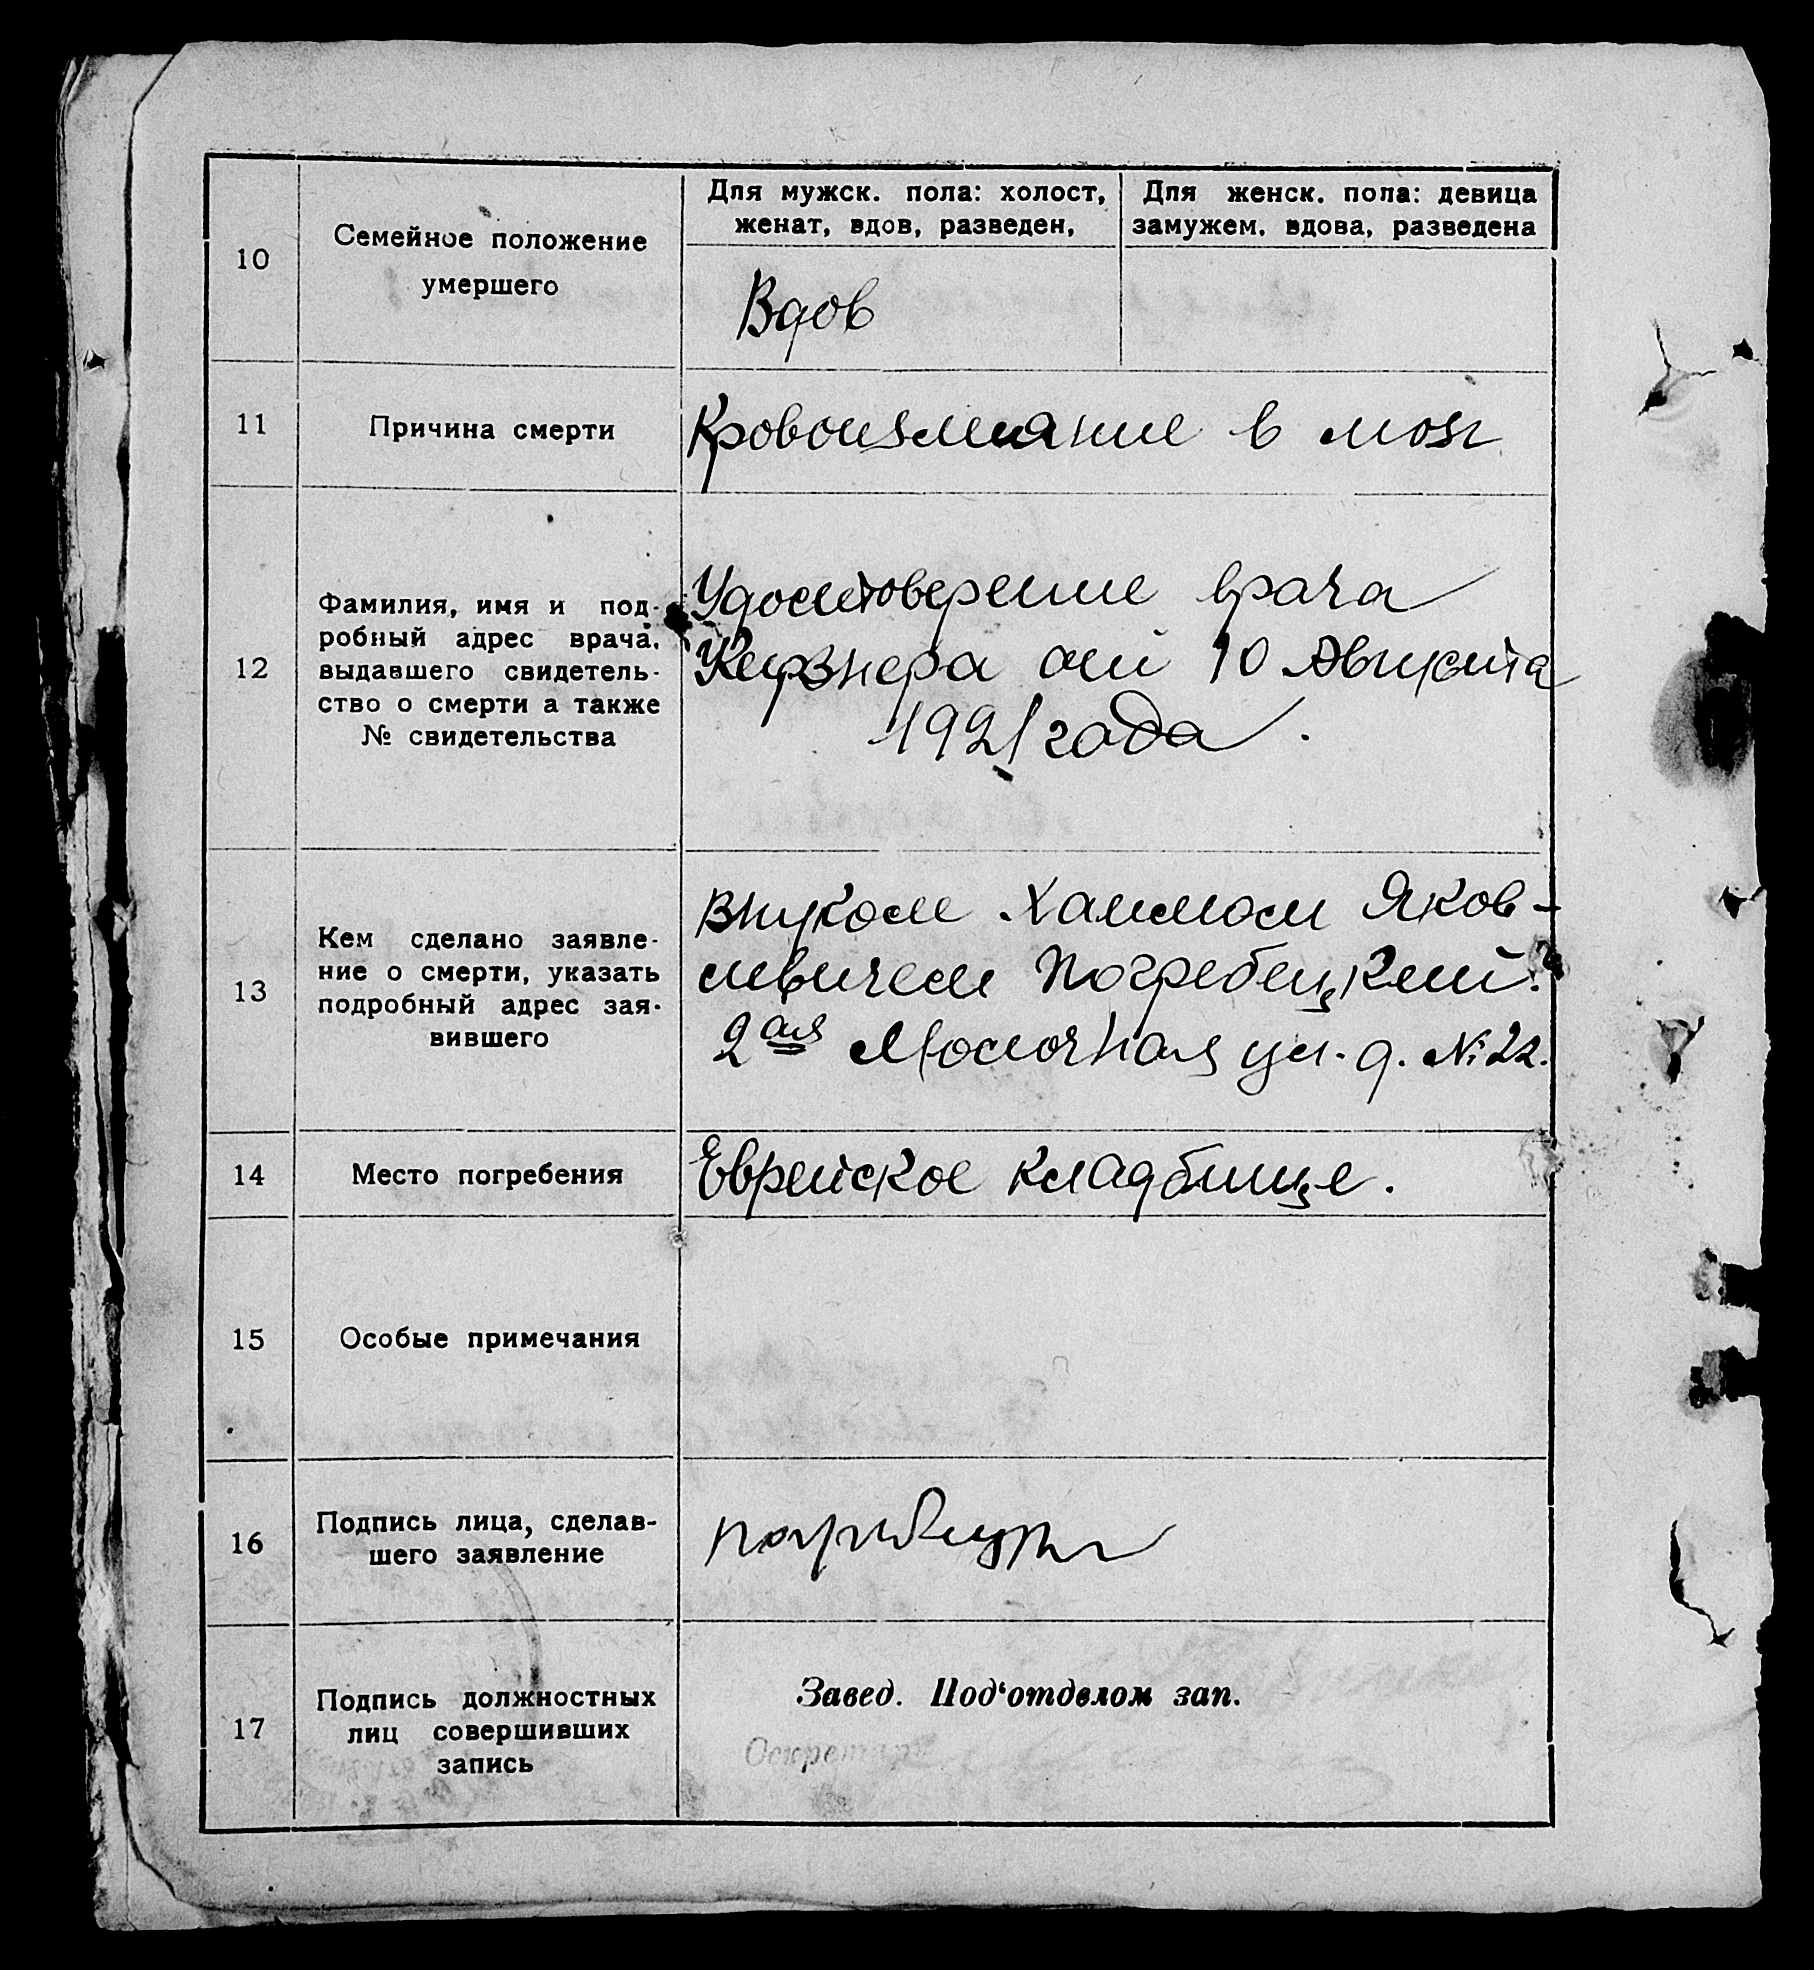 10
Семейное положение
умершего
Для мужск. пола: холост,
женат, вдов, разведен,
Для женск. пола: девица
замужем. вдова, разведена
Вдов
11
Причина смерти
Кровоизлияние в мозг
12
Фамилия, имя и под-
робный адрес врача,
выдавшего свидетель-
ство о смерти а также
№ свидетельства
Удостоверение врача
от 10 Августа
1921 года.
13
Кем сделано заявле-
ние о смерти, указать
подробный адрес зая-
вившего
Внуком Хаимом Яков-
левичем Погребецкий.
2ая Молочная ул. д. № 22.
14
Место погребения
Еврейское кладбище.
15
Особые примечания
16
Подпись лица, сделав-
шего заявление
17
Подпись должностных
лиц совершивших
запись
Завед. Под‘отделом зап.